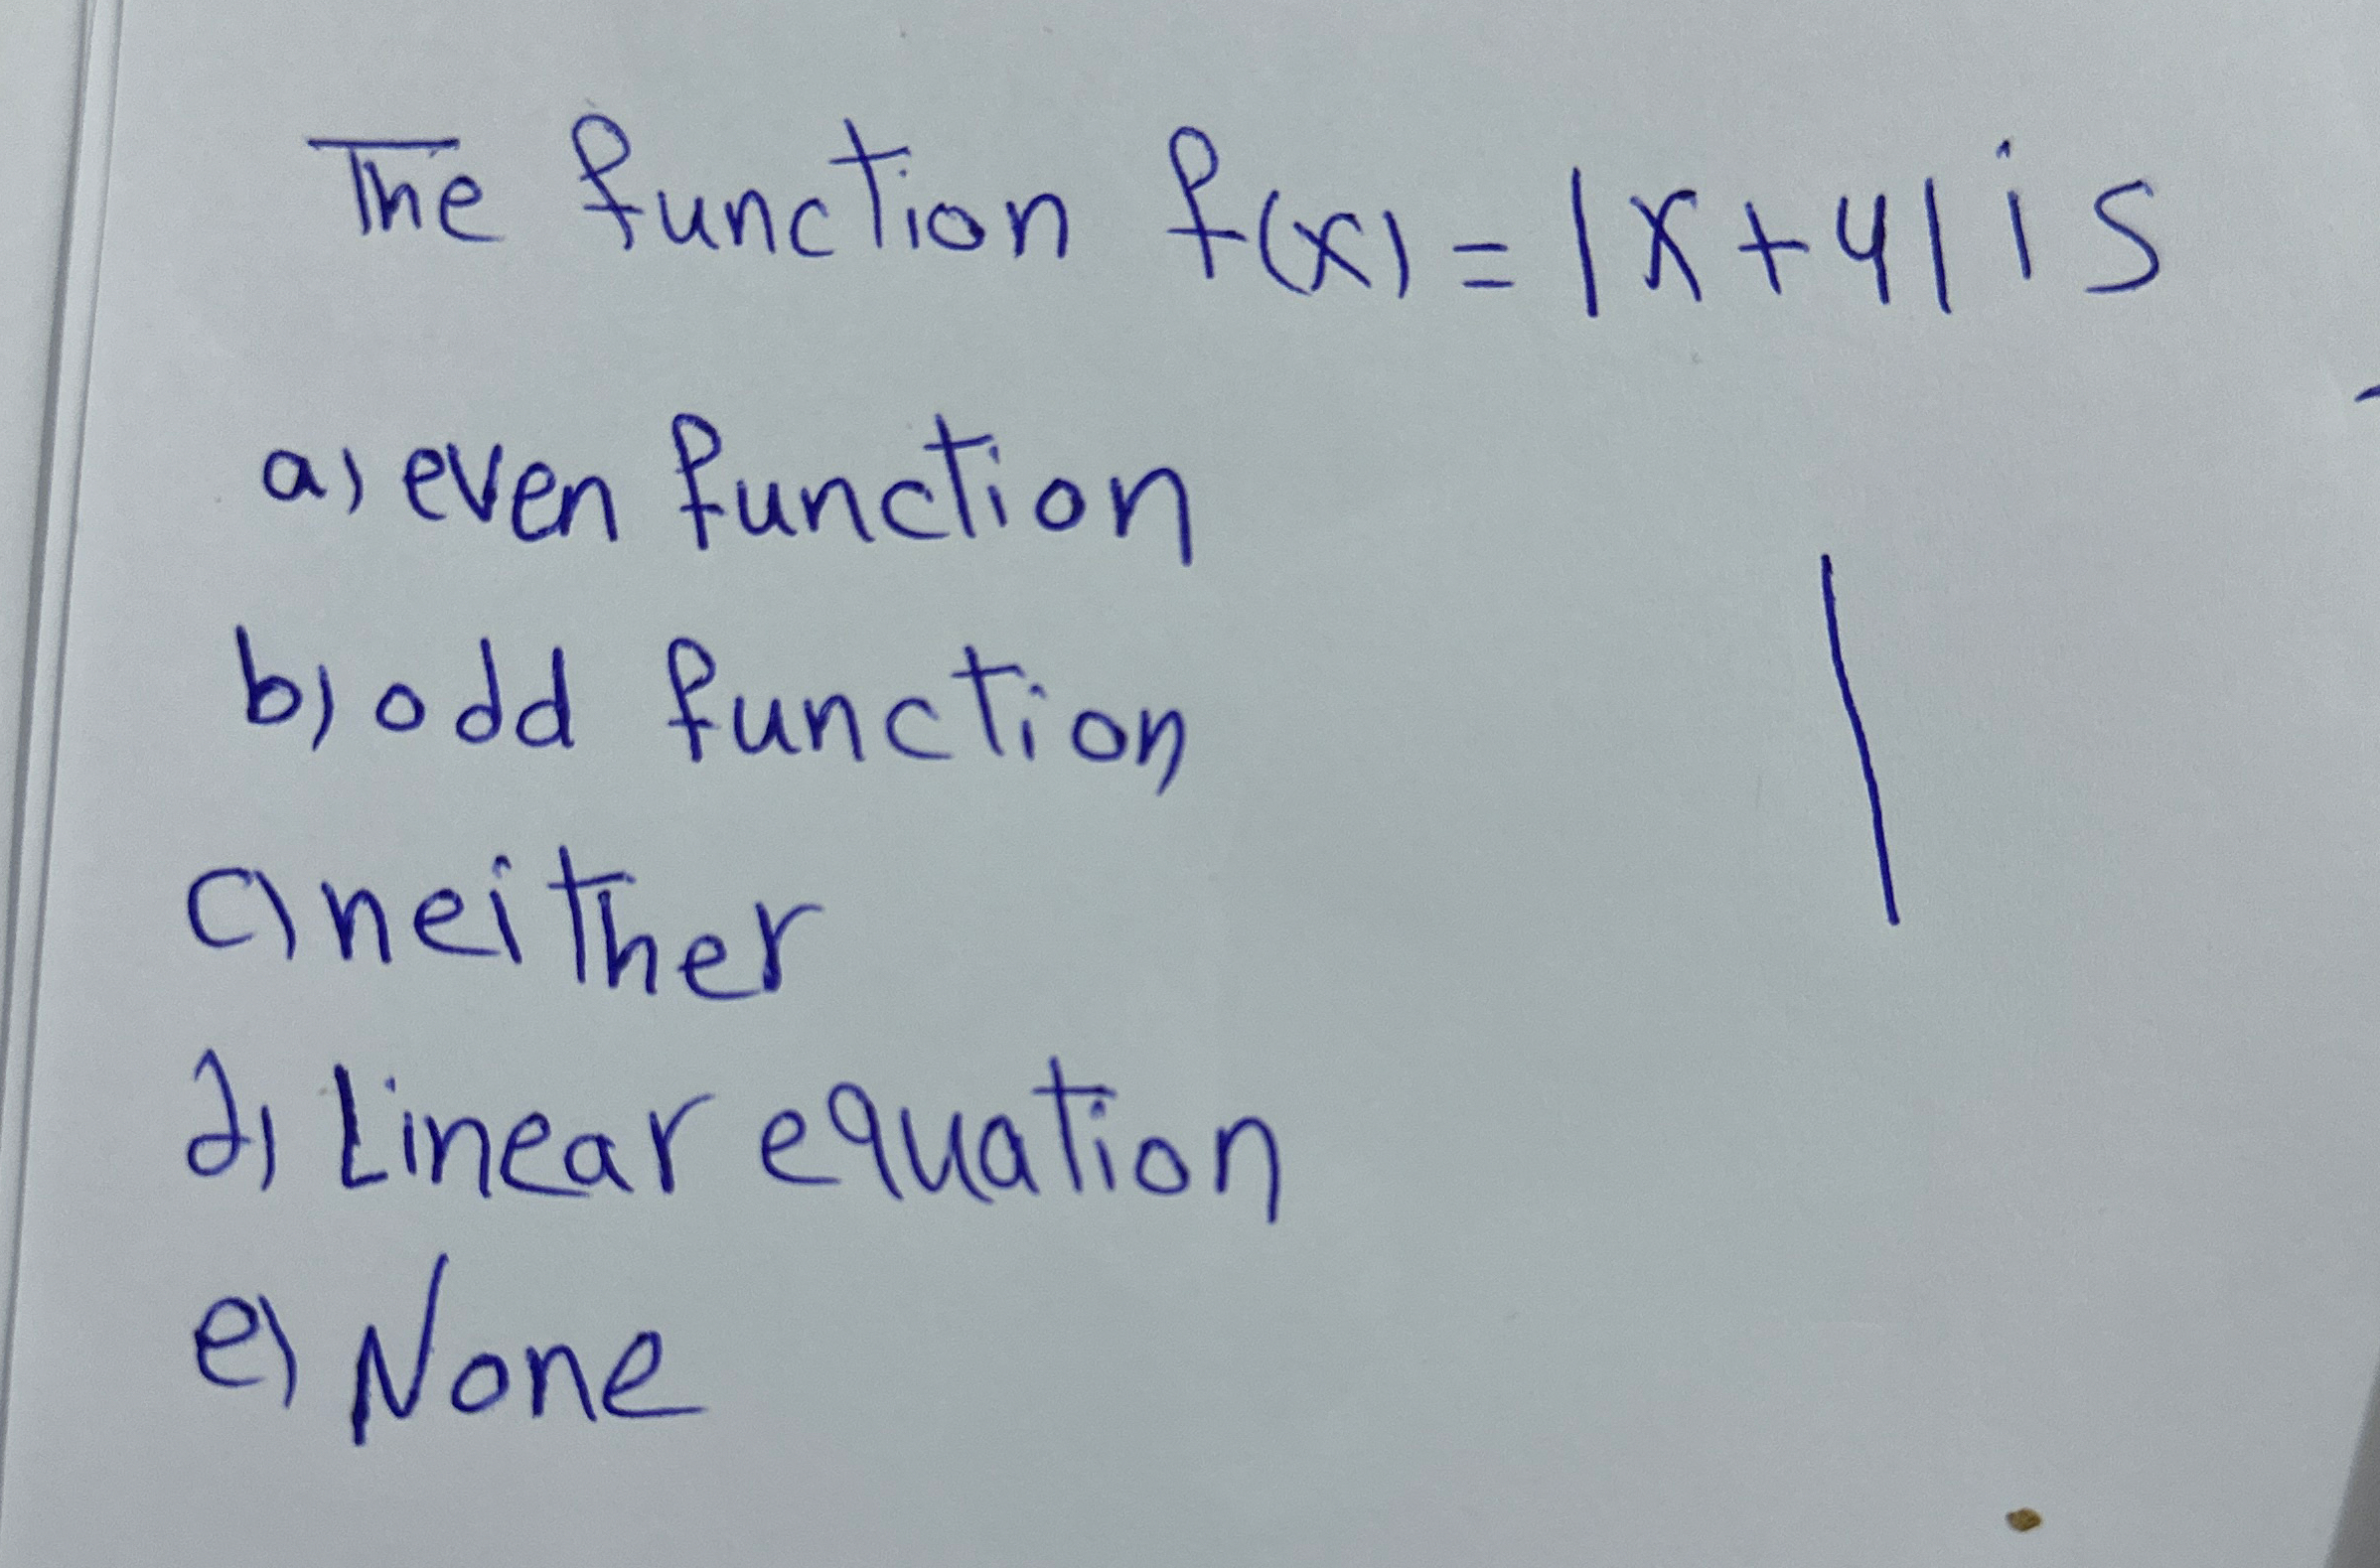 The function f(x) = |x+4| is
a) even function
b) odd function
c) neither
d) Linear equation
e) None